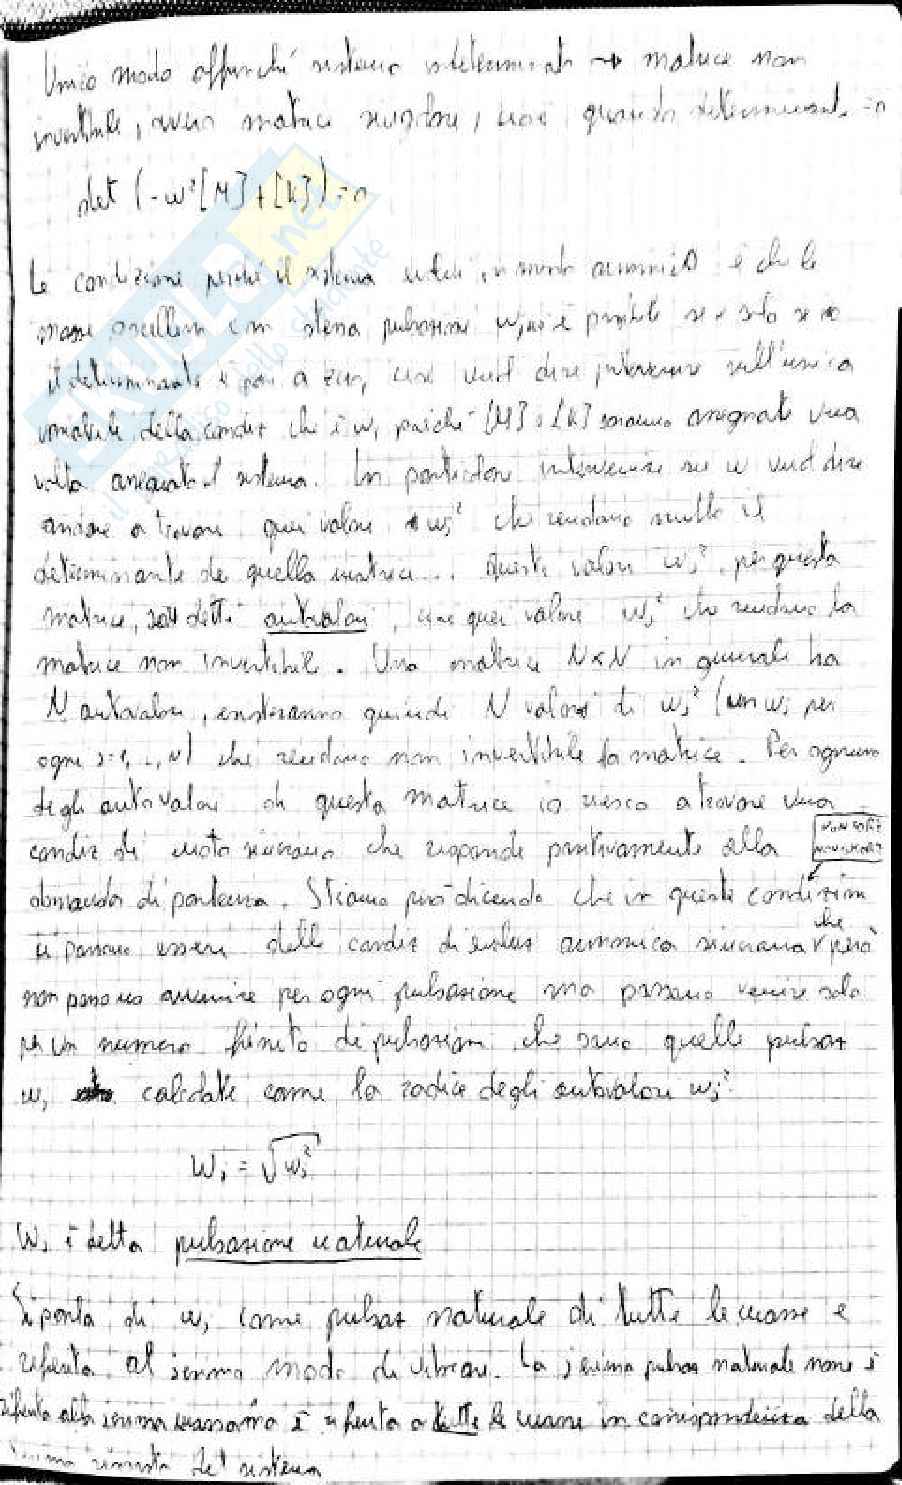 Unico modo affinché sistema indeterminato → matrice non
invertibile, ovvero matrice singolare, cioè quando determinant. = 0
det (-ω²[M]+[K]) = 0
La condizione perché il sistema entri in moto armonico è che le
masse oscillano con stessa pulsazione ω, ciò è possibile se e solo se
il determinante è pari a zero, cioè vuol dire intervenire sull'unica
variabile della condiz che è ω, poiché [M] e [K] saranno assegnate una
volta assegnato il sistema. In particolare intervenire su ω vuol dire
andare a trovare quei valori ωi² che rendano nullo il
determinante di quella matrice... Questi valori ωi², per questa
matrice, son detti autovalori, cioè quei valori ωi² che rendono la
matrice non invertibile. Una matrice N×N in generale ha
N autovalori, esisteranno quindi N valori di ωi² (con ωi per
ogni i=1, .., N) che rendano non invertibile la matrice. Per ognuno
degli autovalori di questa matrice io riesco a trovare una
condiz di moto sincrono che risponde positivamente alla
domanda di partenza. Stiamo però dicendo che in queste condizioni
ci possono essere delle condiz di armonica sincrona che però
non possono avvenire per ogni pulsazione ma possono venire solo
per un numero finito di pulsazioni che sono quelle pulsaz
ωi calcolate come la radice degli autovalori ωi²
ωi = √ωi²
ωi è detta pulsazione naturale
Si parla di ωi come pulsaz naturale di tutte le masse e
riferita al iesimo modo di vibrare. La iesima pulsaz naturale non è
riferita alla iesima massa ma è riferita a tutte le masse in corrispondenza della
iesima del sistema